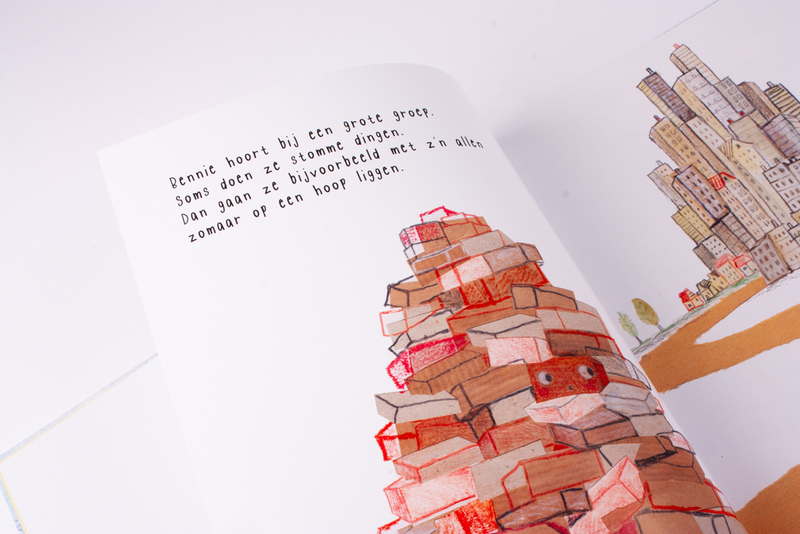 Bennie hoort bij een grote groep.
Soms doen ze stomme dingen.
Dan gaan ze bijvoorbeeld met z'n allen
zomaar op een hoop liggen.